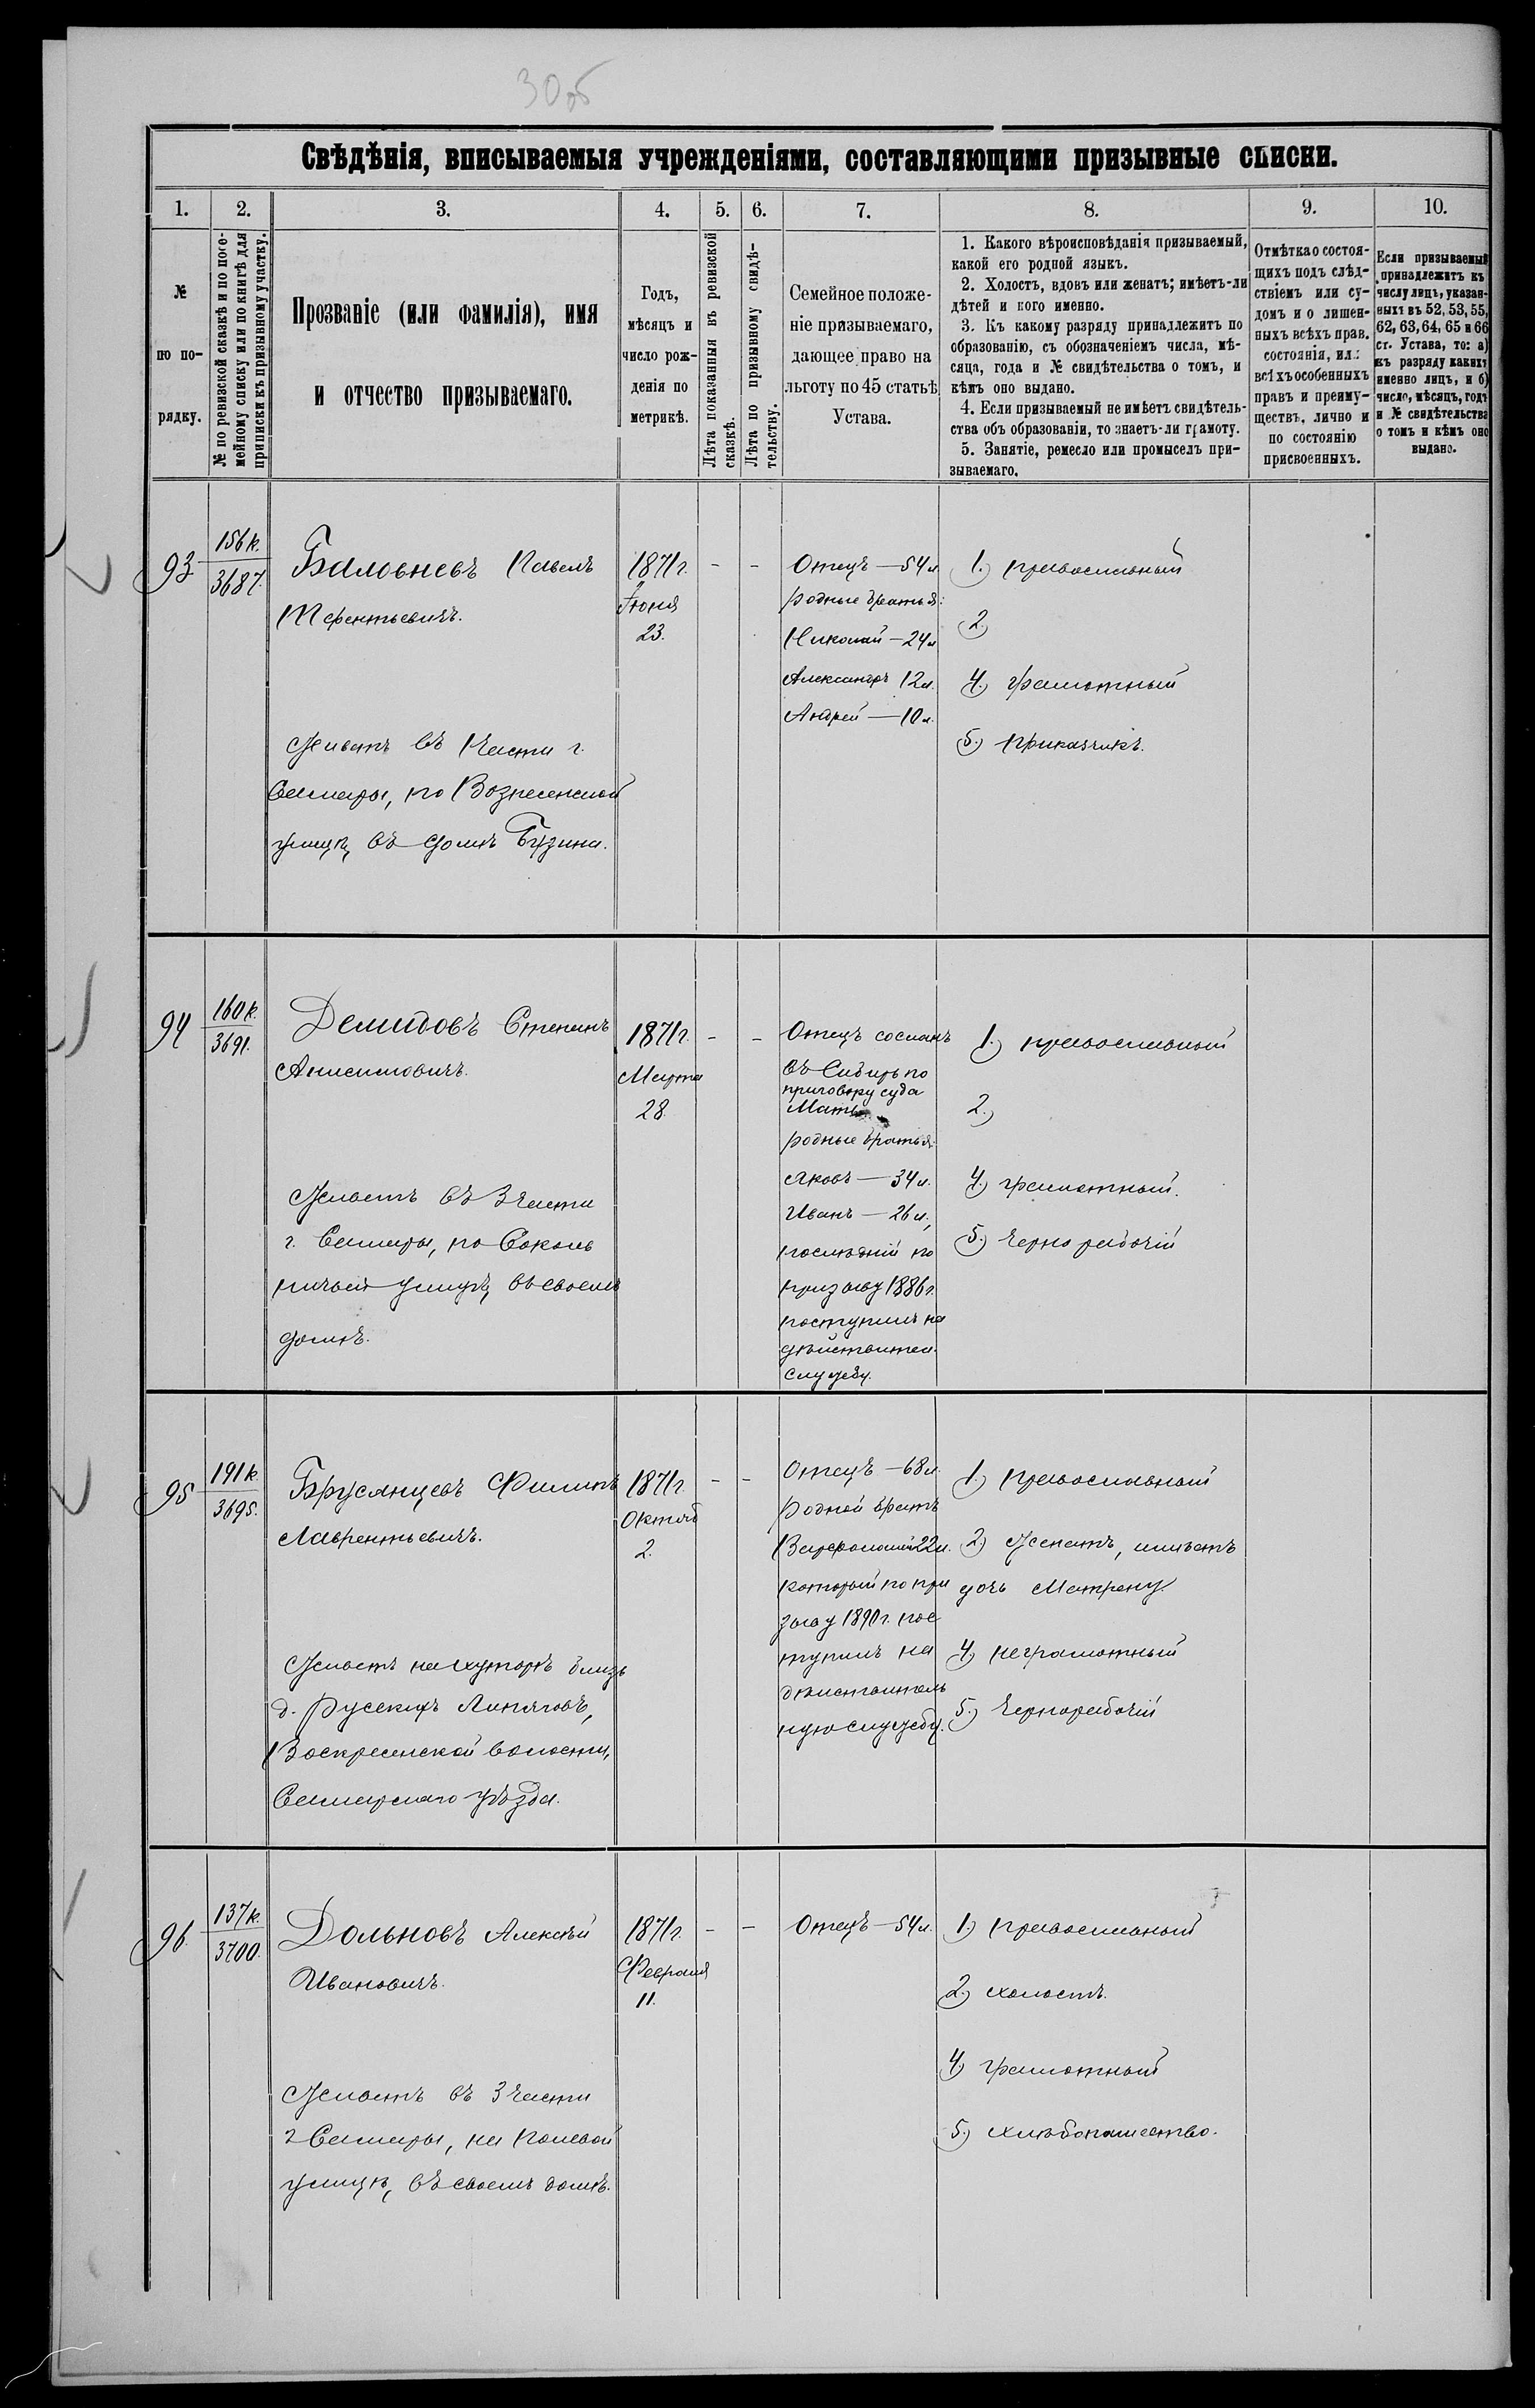 30об
Свѣдѣнія, вписываемыя учрежденіями, составляющими призывные списки.
1.
2.
3.
4.
5.
6.
7.
8.
9.
10.
№
по по-
рядку.
№ по ревизской сказкѣ и по посе-
мейному списку или по книгѣ для
приписки къ призывному участку.
Прозваніе (или фамилія), имя
и отчество призываемаго.
Годъ,
мѣсяцъ и
число рож-
денія по
метрикѣ.
Лѣта показанныя въ ревизской
сказкѣ.
Лѣта по призывному свидѣ-
тельству.
Семейное положе-
ніе призываемаго,
дающее право на
льготу по 45 статьѣ
Устава.
1. Какого вѣроисповѣданія призываемый,
какой его родной языкъ.
2. Холостъ, вдовъ или женатъ; имѣетъ-ли
дѣтей и кого именно.
3. Къ какому разряду принадлежитъ по
образованію, съ обозначеніемъ числа, мѣ-
сяца, года и № свидѣтельства о томъ, и
кѣмъ оно выдано.
4. Если призываемый не имѣетъ свидѣтель-
ства объ образованіи, то знаетъ-ли грамоту.
5. Занятіе, ремесло или промыселъ при-
зываемаго.
Отмѣтка о состоя-
щихъ подъ слѣд-
ствіемъ или су-
домъ и о лишен-
ныхъ всѣхъ прав.
состоянія, ил:
всѣхъ особенныхъ
правъ и преиму-
ществъ, лично и
по состоянію
присвоенныхъ.
Если призываемый
принадлежитъ къ
числу лицъ, указан-
ныхъ въ 52, 53, 55,
62, 63, 64, 65 и 66
ст. Устава, то: а)
къ разряду какихъ
именно лицъ, и б)
число, мѣсяцъ, годъ
и № свидѣтельства
о томъ и кѣмъ оно
выдано.
93
156 к.
3687.
Баловневъ Павелъ
Терентьевичъ.
Живетъ въ 1 части г.
Самары, по Вознесенской
улицѣ, въ домѣ Бузина.
1871 г.
Іюня
23.
-
-
Отецъ — 54 л
родные братья:
Николай — 24 л
Александръ 12 л.
Андрей — 10 л.
1.) православный
2.)
4.) грамотный
5.) приказчикъ.
94
160 к.
3691.
Демидовъ Степанъ
Анисимовичъ.
Живетъ въ 3 части
г. Самары, по Соколь
ничьей улицѣ, въ своемъ
домѣ.
1871 г.
Марта
28.
-
-
Отецъ сосланъ
въ Сибирь по
приговору суда
Мать
родные братья:
Яковъ — 34 л.
Иванъ — 26 л.,
послѣдній по
призыву 1886 г.
поступилъ на
дѣйствител.
службу.
1.) православный
2.)
4.) грамотный.
5.) чернорабочій
95
191 к.
3695.
Брусянцевъ Филипъ
Лаврентьевичъ.
Живетъ на хуторѣ близь
д. Русскихъ Липяговъ,
Воскресенской волости,
Самарскаго уѣзда.
1871 г.
Октяб
2.
-
-
Отецъ — 68 л.
Родной братъ
Варфоломей 22 л.
который по при
зыву 1890 г. пос
тупилъ на
дѣйствитель
ную службу.
1.) православный
2.) Женатъ, имѣетъ
дочь Матрену.
4.) неграмотный
5.) чернорабочій
96.
137 к.
3700.
Дольновъ Алексѣй
Ивановичъ.
Живетъ въ 3 части
г. Самары, на Полевой
улицѣ, въ своемъ домѣ.
1871 г.
Февраля
11.
-
-
Отецъ — 54 л.
1.) православный
2.) холостъ.
4.) грамотный
5.) хлѣбопашество.